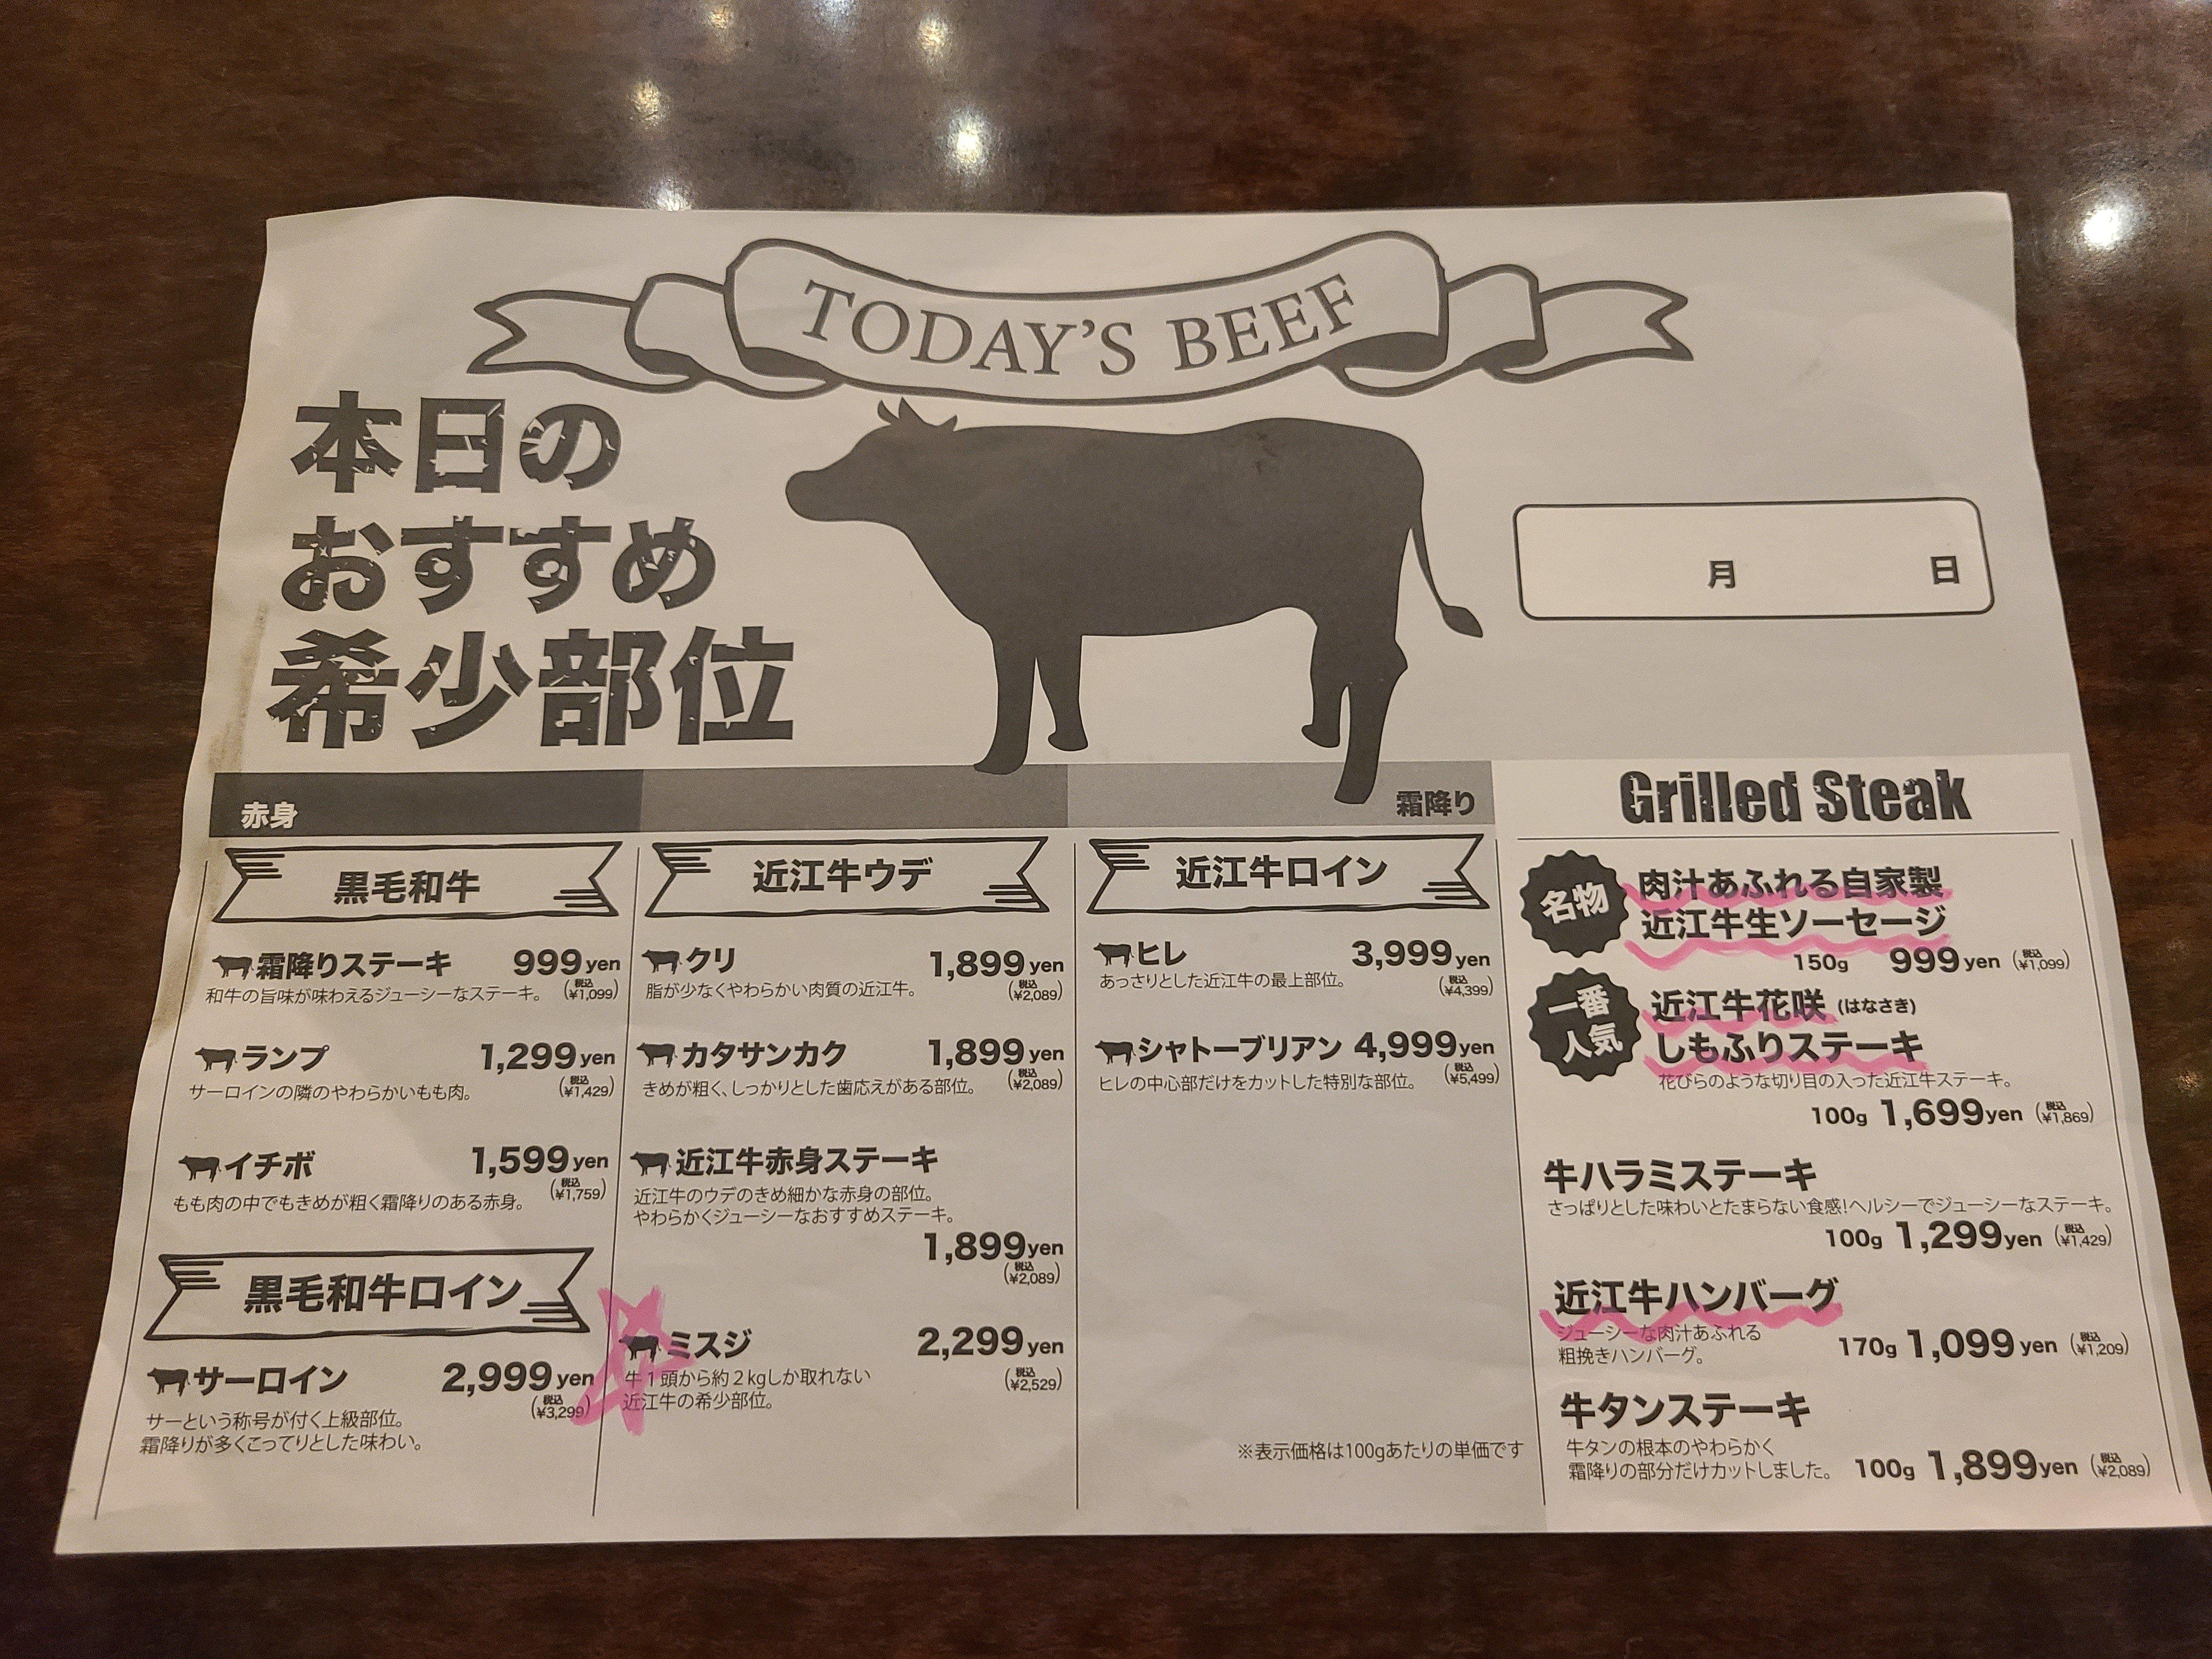 TODAY'S BEEF
本日の
おすすめ
希少部位
月 日
赤身
霜降り
黒毛和牛
霜降りステーキ 999yen
和牛の旨味が味わえるジューシーなステーキ。 (税込¥1,099)
ランプ 1,299yen
サーロインの隣のやわらかいもも肉。 (税込¥1,429)
イチボ 1,599yen
もも肉の中でもきめが粗く霜降りのある赤身。 (税込¥1,759)
黒毛和牛ロイン
サーロイン 2,999yen
(税込¥3,299)
サーという称号が付く上級部位。
霜降りが多くこってりとした味わい。
近江牛ウデ
クリ 1,899yen
脂が少なくやわらかい肉質の近江牛。 (税込¥2,089)
カタサンカク 1,899yen
きめが粗く、しっかりとした歯応えがある部位。 (税込¥2,089)
近江牛赤身ステーキ
近江牛のウデのきめ細かな赤身の部位。
やわらかくジューシーなおすすめステーキ。
1,899yen
(税込¥2,089)
ミスジ 2,299yen
牛1頭から約2kgしか取れない (税込¥2,529)
近江牛の希少部位。
近江牛ロイン
ヒレ 3,999yen
あっさりとした近江牛の最上部位。 (税込¥4,399)
シャトーブリアン 4,999yen
ヒレの中心部だけをカットした特別な部位。 (税込¥5,499)
※表示価格は100gあたりの単価です
Grilled Steak
名物
肉汁あふれる自家製
近江牛生ソーセージ
150g 999yen (税込¥1,099)
一番
人気
近江牛花咲 (はなさき)
しもふりステーキ
花びらのような切り目の入った近江牛ステーキ。
100g 1,699yen (税込¥1,869)
牛ハラミステーキ
さっぱりとした味わいとたまらない食感!ヘルシーでジューシーなステーキ。
100g 1,299yen (税込¥1,429)
近江牛ハンバーグ
ジューシーな肉汁あふれる
粗挽きハンバーグ。 170g 1,099yen (税込¥1,209)
牛タンステーキ
牛タンの根本のやわらかく
霜降りの部分だけカットしました。 100g 1,899yen (税込¥2,089)